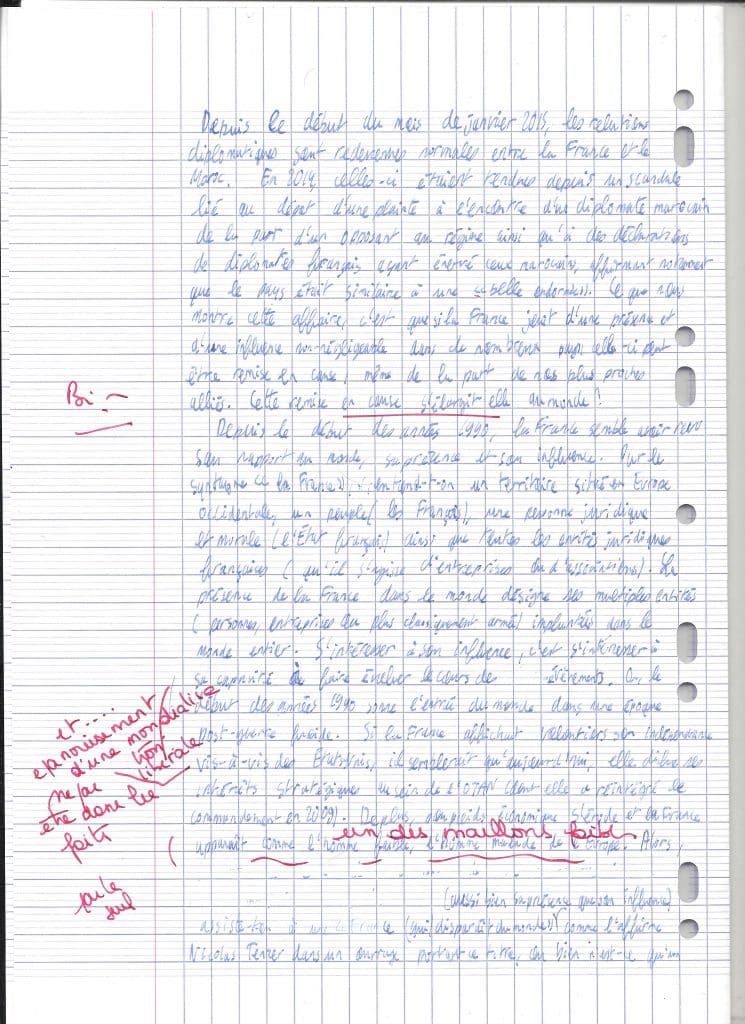 Depuis le début du mois de janvier 2015, les relations
diplomatiques sont redevenues normales entre la France et le
Maroc. En 2014, celles-ci étaient tendues depuis un scandale
lié au dépot d'une plainte à l'encontre d'un diplomate marocain
de la part d'un opposant au régime ainsi qu'à des déclarations
de diplomates français ayant énervé ceux marocains, affirmant notamment
que le pays était similaire à une endormie». Ce que nous
montre cette affaire, c'est que si la France jouit d'une présence et
d'une influence non-négligeable dans de nombreux pays celle-ci peut
être remise en cause, même de la part de nos plus proches
alliés. Cette remise en cause s'élargit elle au monde?
Bi:
Depuis le début des années 1990, la France semble avoir revu
son rapport au monde, sa présence et son influence. Par le
syntagme «la France», entend-t-on un territoire situé en Europe
occidentale, un peuple (les Français), une personne juridique
et morale (l'État français) ainsi que toutes les entités juridiques
françaises (qu'il s'agisse d'entreprises ou d'associations). La
présence de la France dans le monde désigne ses multiples entités
(personnes, entreprises ou plus classiquement armée) implantées dans le
monde entier. S'intéresser à son influence, c'est s'intéresser à
sa capacité à faire évoluer le cours de évènements. Or, le
début des années 1990 sonne l'entrée du monde dans une époque
post-guerre froide. Si la France affichait volontiers son indépendance
vis-à-vis des Etats-Unis, il semblerait qu'aujourd'hui, elle
intérêts stratégiques au sein de l'OTAN (dont elle a réintégré le
commandement en 2009). De plus, son poids économique s'érode et la France
un des maillons faibles
apparaît comme l'homme faible, l'homme malade de l'Europe. Alors,
et....
epanouissement
d'une mondialisa
tion
libérale
ne pas
être dans les
faits
(aussi bien sa présence que son influence)
assiste-t-on à une France (qui) disparaît du monde» comme l'affirme
Nicolas Tenzer dans un ouvrage portant ce titre, ou bien n'est-ce qu'un